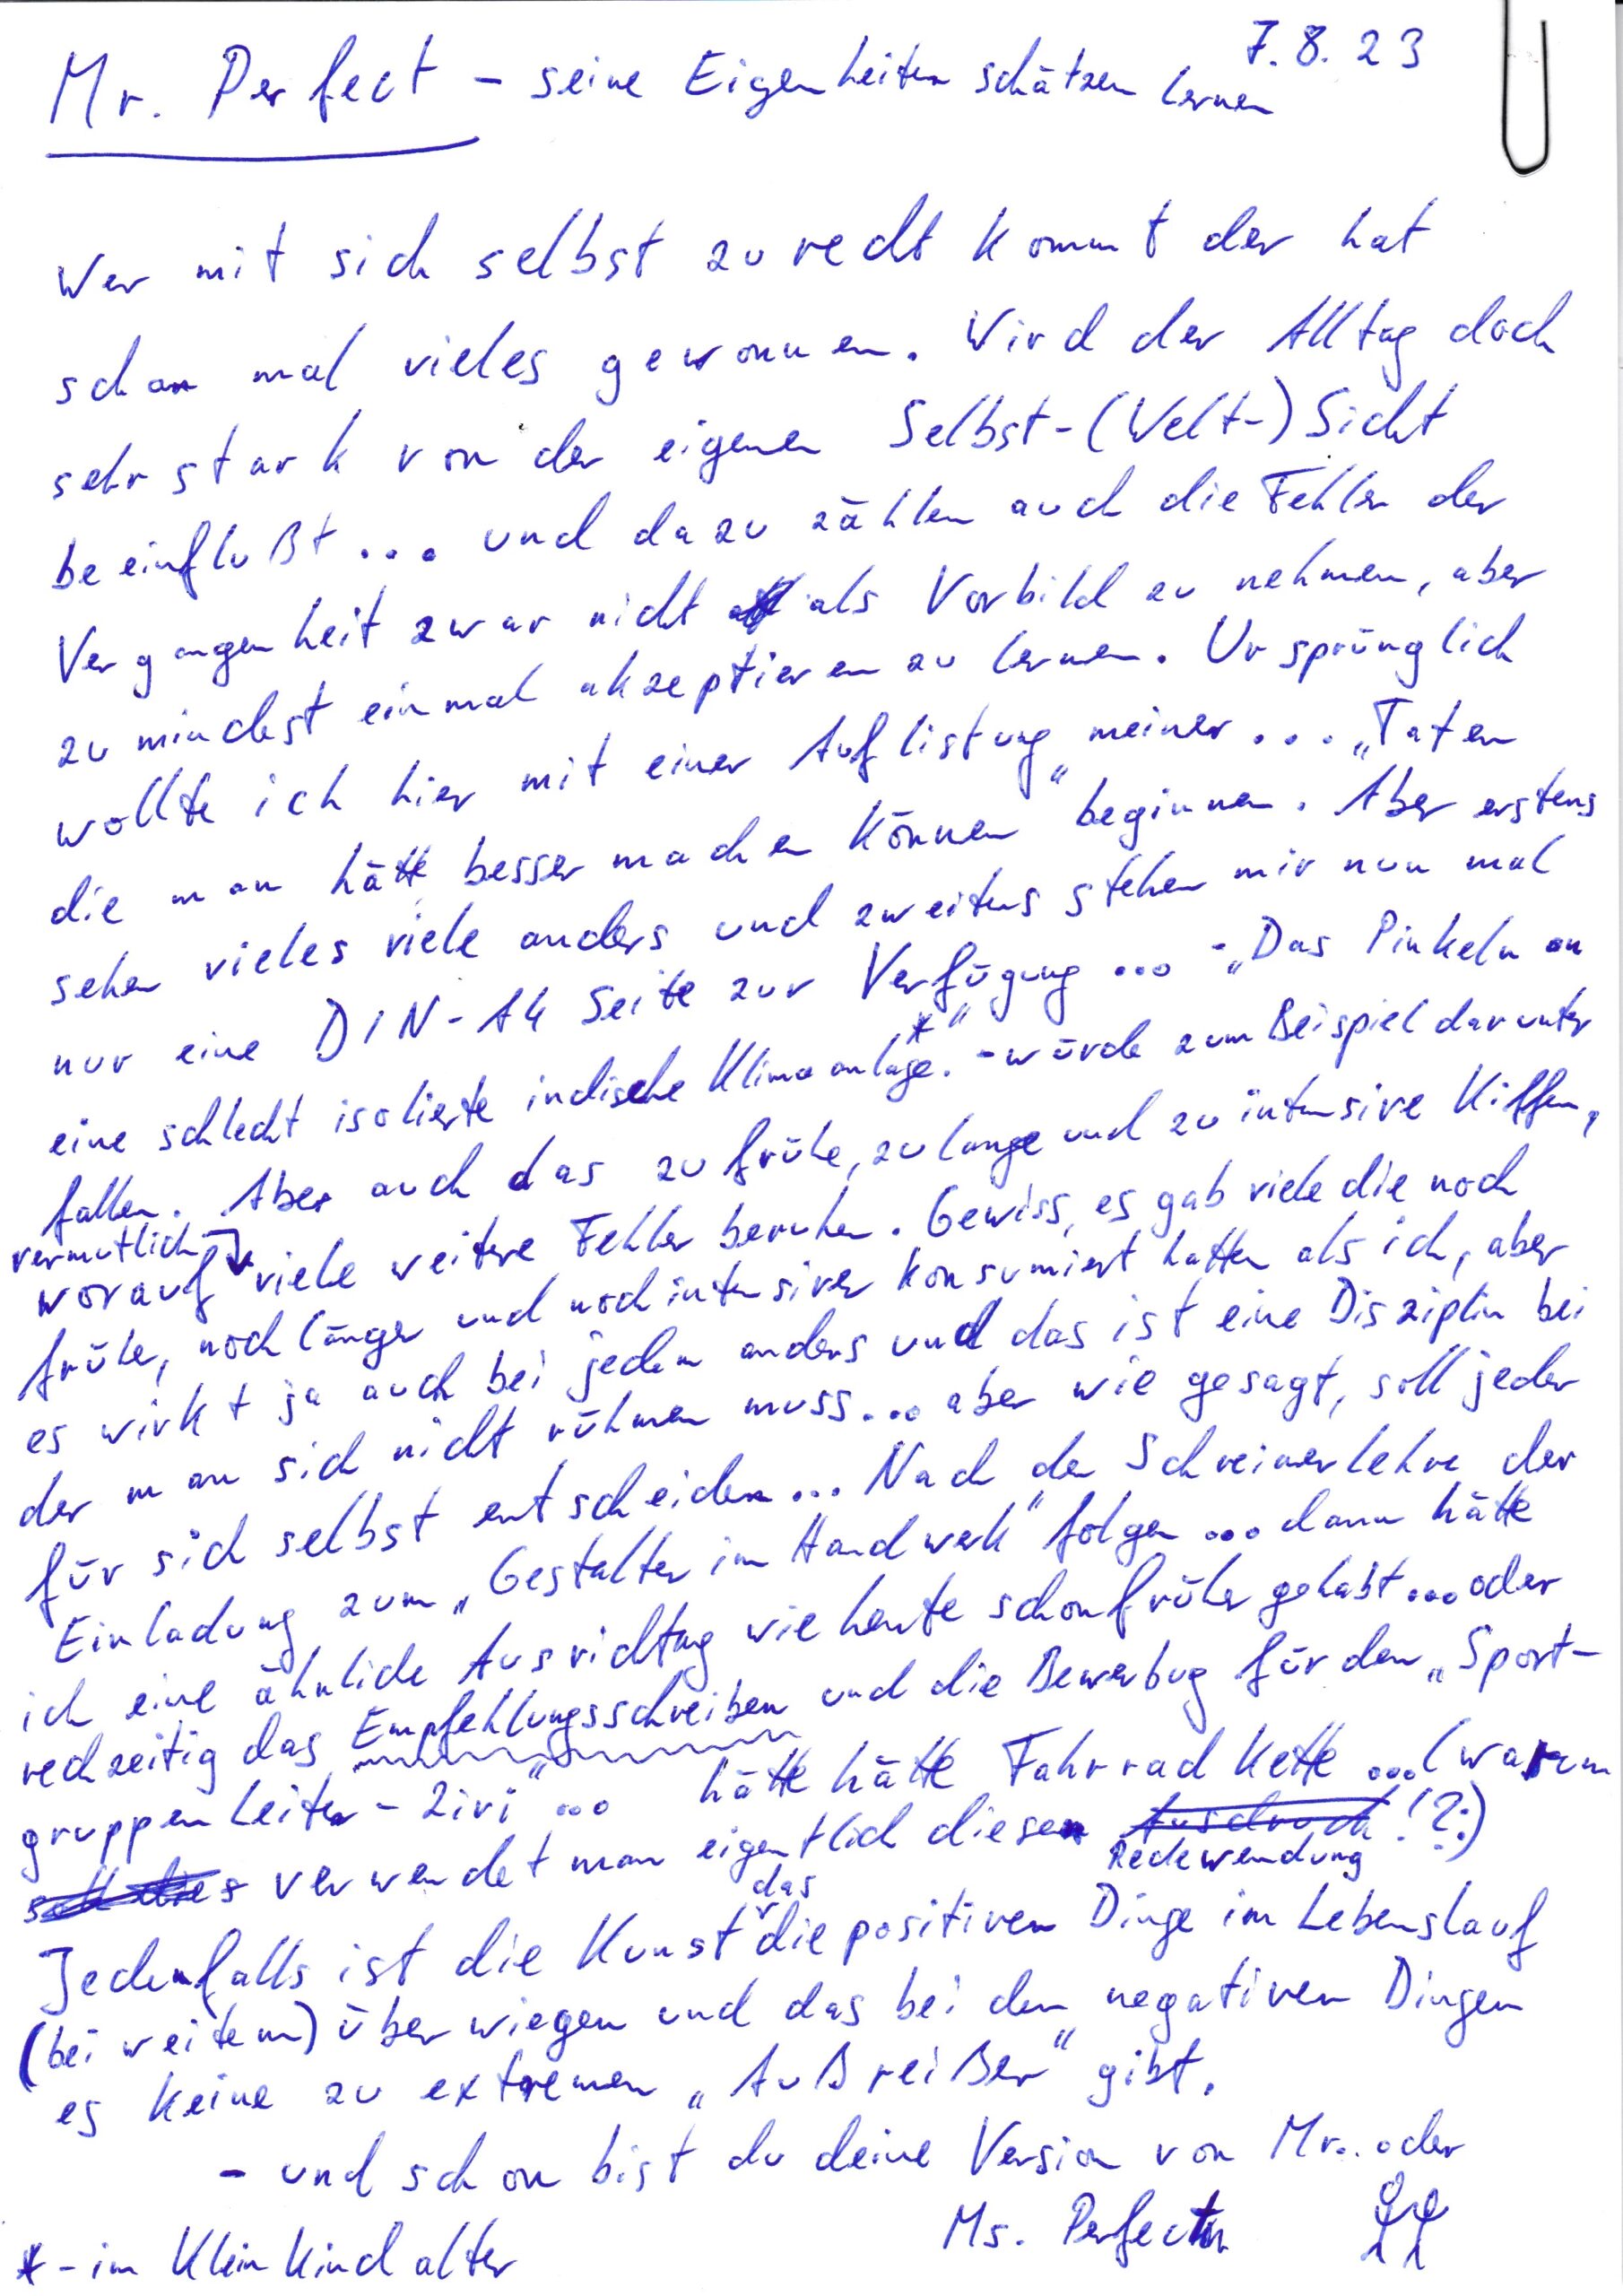 7.8.23
Mr. Perfect - seine Eigenheiten schätzen lernen
Wer mit sich selbst zurecht kommt der hat
schon mal vieles gewonnen. Wird der Alltag doch
sehr stark von der eigenen Selbst-(Welt-)Sicht
beeinflußt... und dazu zählen auch die Fehler der
Vergangenheit zwar nicht als Vorbild zu nehmen, aber
zumindest einmal akzeptieren zu lernen. Ursprünglich
wollte ich hier mit einer Auflistung meiner... „Taten
die man hätte besser machen können" beginnen. Aber erstens
sehen vieles viele anders und zweitens stehen mir nun mal
nur eine DIN-A4 Seite zur Verfügung ... - „Das Pinkeln an
eine schlecht isolierte indische Klimaanlage.*" - würde zum Beispiel darunter
fallen. Aber auch das zu frühe, zu lange und zu intensive Kiffen,
vermutlich
worauf viele weitere Fehler beruhen. Gewiss, es gab viele die noch
früher, noch länger und noch intensiver konsumiert hatten als ich, aber
es wirkt ja auch bei jedem anders und das ist eine Disziplin bei
der man sich nicht rühmen muss... aber wie gesagt, soll jeder
für sich selbst entscheiden... Nach der Schreinerlehre der
Einladung zum „Gestalter im Handwerk" folgen ... dann hätte
ich eine ähnliche Ausrichtung wie heute schon früher gehabt ... oder
rechzeitig das Empfehlungsschreiben und die Bewerbug für den „Sport-
gruppen Leiter - Zivi" ... hätte hätte Fahrrad Kette ... (warum
verwendet man eigentlich diese Ausdruck !?:)
Redewendung
das
Jedenfalls ist die Kunst die positiven Dinge im Lebenslauf
(bei weitem) überwiegen und das bei den negativen Dingen
es keine zu extremen „Außreißer" gibt.
- und schon bist du deine Version von Mr.. oder
Ms. Perfect
* - im Kleinkindalter